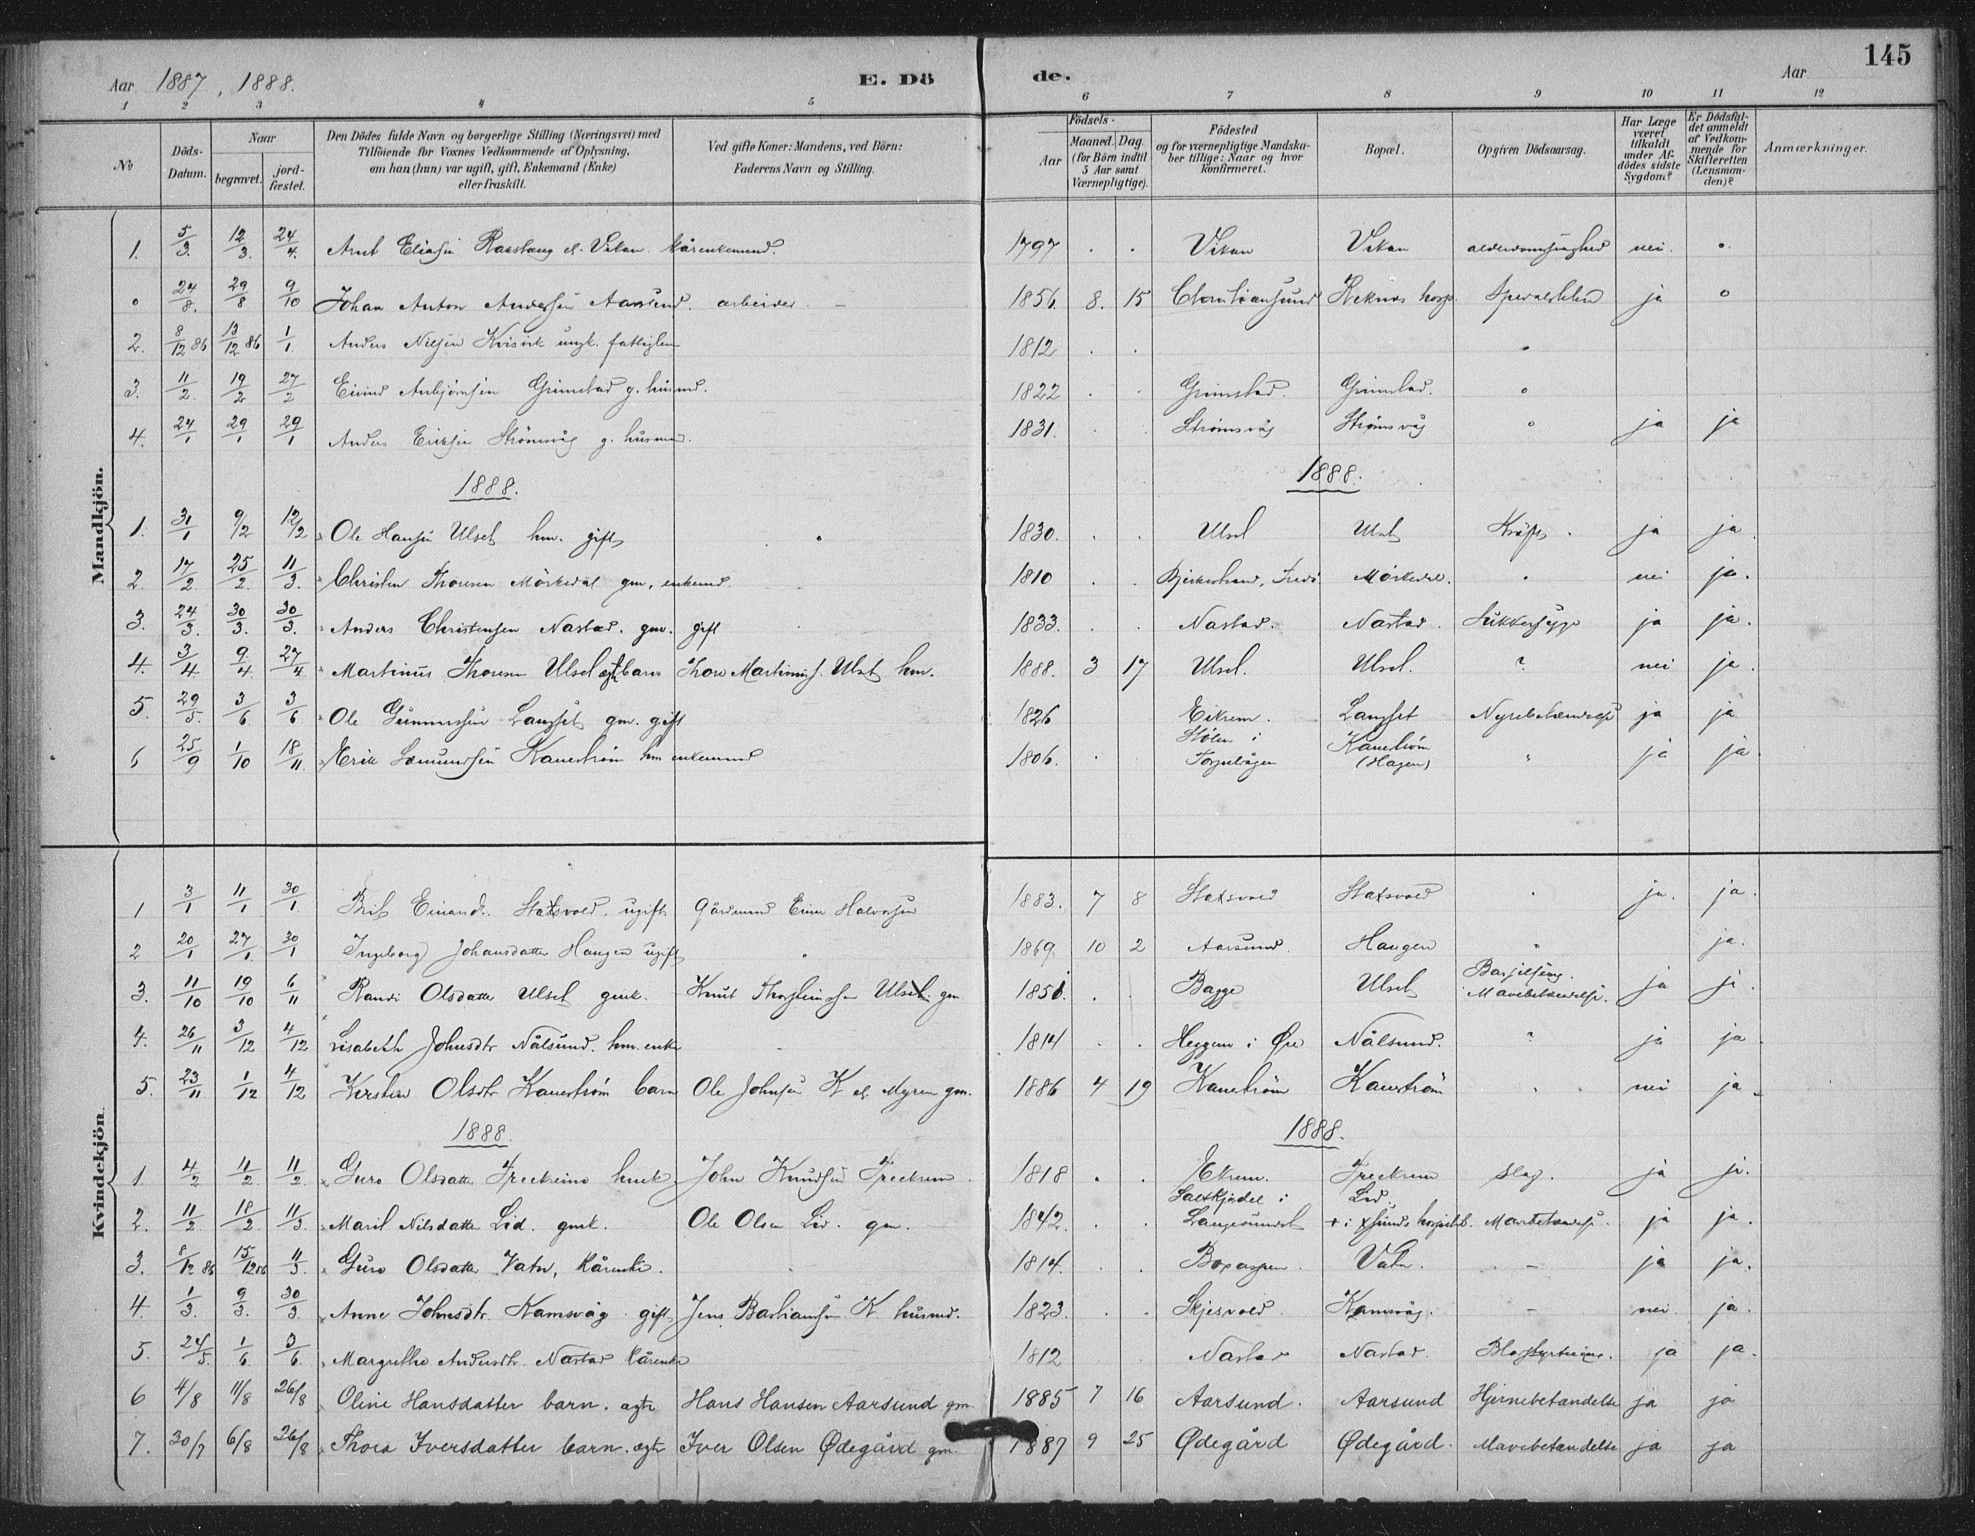 Aar 1887, 1888. E. Dö de. Aar 145
1 2 3 4 5 6 7 8 9 10 11 12
No
Döds-Datum.
Naar
begravet.
jord-fæstet.
Den Dödes fulde Navn og borgerlige Stilling (Næringsvei) med
Tilföiende for Voxnes Vedkommende af Oplysning,
om han (hun) var ugift, gift, Enkemand (Enke)
eller fraskilt.
Ved gifte Koner: Mandens, ved Börn:
Faderens Navn og Stilling.
Födsels-
Aar
Maaned. Dag.
(for Börn indtil
5 Aar samt
Værnepligtige).
Födested
og for værnepligtige Mandska-
ber tillige: Naar og hvor
konfirmeret.
Bopæl.
Opgiven Dödsaarsag.
Har Læge
været
tilkaldt
under Af-
dödes sidste
Sygdom?
Er Dödsfal-
det anmeldt
af Vedkom-
mende for
Skifteretten
(Lensman-
den)?
Anmærkninger.
Mandkjön.
1. 5/3. 12/3. 24/4. Arnt Vikan kårenkemand. 1797 . . Vikan Vikan nei. o.
o 24/8. 29/8 9/10 Johan Anton Andersen Aarsund. arbeider – 1856. 8. 15 Christiansund hosp. ja o
2. 8/12 86 13/12 86 1/1 Anders Nilsen Kvisvik ungk. fattiglem 1812 . .
3. 11/2. 19/2 27/2 Eivind Grimstad g. husmd. 1822 . . Grimstad. Grimstad. o
4. 24/1 29/1 29/1 Anders Eriksen Strömsvåg g. husmd. 1831. . . Strömsvåg Strömsvåg o ja ja
1888. 1888.
1. 31/1 9/2 12/2 Ole Hansen Ulset hm. gift 1830. . . Ulset Ulset Kræft. ja ja.
2. 17/2 25/2. 11/3. Christen Thoresen Mörkedal gm. enkemd. 1810 . . Mörkedal. nei ja.
3. 24/3. 30/3. 30/3. Anders Christensen Nastad. gm. gift 1833. . . Nastad. Nastad. Sukkersyge ja ja.
4. 3/4 9/4. 27/4 Martinus Thoresen Ulset ægt. barn Thore Martinus. Ulset hm. 1888. 3 17 Ulset. Ulset. ? nei ja.
5. 29/5. 3/6 3/6 Ole Gunnersen Langset gm. gift 1826 Eikrem. Langset Nyrebetændelse ja ja.
6 25/9 1/10 18/11. Erik Kanestrøm hm enkemand 1806. Stölen i Kanestrøm (Hagen) ja ja
Kvindekjön.
1 3/1 11/1 30/1. Brit Statsvold, ugift Gårdmand Einar Halvorsen 1883. 7 8 Statsvold Statsvold ja. ja.
2 20/1 27/1. 30/1 Ingeborg Johansdatter Haugen ugift 1869. 10 2 Aarsund. Haugen ja.
3. 11/10 19/10 6/11 Randi Olsdatter Ulset gmk. Knut Thorsteinsen Ulset. gm. . . Bagge Ulset Barselseng. Mavebetændelse. ja ja.
4. 26/11 3/12 4/12 Lisabeth Johnsdtr Nålsund. hm. enke 1814 . . Heggem i Øre Nålsund. ? ja ja.
5. 23/11 1/12 4/12 Kirsten Olsdtr Kanestrøm barn Ole Johnsen K. el. Myren gm. 1886 4 19 Kanestrøm Kanestrøm nei ja.
1888. 1888.
1. 4/2 11/2 11/2. Guro Olsdatter hmk. John Knudsen 1818 . . Ekrem. Slag. ja ja.
2. 11/2 18/2. 11/3. Marit Nilsdatter Lid. gmk. Ole Olsen Lid. gm. 1842. . . Saltkjelel i Langesundet Lid. + i xsunds hospital. Mavebetændelse. ja ja.
3. 8/12 86 15/12 86 11/3. Guro Olsdatter Vatn, kårenke. 1814. . . Vatn. – ja ja.
4. 1/3. 9/3. 30/3. Anne Johnsdtr. Kamsvåg gift Jens Bastiansen K. husmd. 1823. . . Skjesvold. Kamsvåg. – nei ja.
5. 24/5. 1/6. 3/6. Margrethe Andersdtr. Nastad kårenke 1812 . . Nastad Nastad. Blodstyrtning. ja ja.
6 4/8 11/8 26/8 Oline Hansdatter barn. ægte Hans Hansen Aarsund gm. 1885 7 16 Aarsund. Aarsund Hjernebetændelse ja ja
7. 30/7 6/8 26/8 Thora Iversdatter barn. ægte Iver Olsen Ødegård gm. 1887 9 25 Ødegård Ødegård. Mavebetændelse ja ja